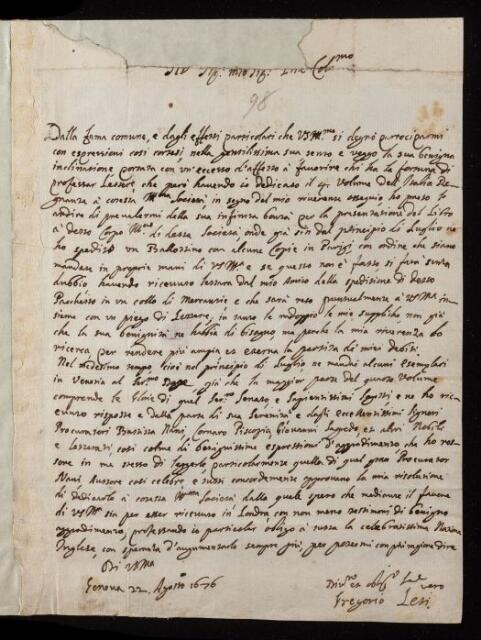 Ill.mo Sig.r mio Sig.r Pne Col.mo
98
Dalla fama comune, e dagli effetti particolari che VS Ill.ma si degnò participarmi
con espressioni così cortesi, nella gentilissima sua sento e veggo la sua benigna
inclinazione portata con un'eccesso d'affetto à favorire chi ha la fortuna di
professar Lettere, che però havendo io dedicato il 4.o Volume dell'Italia Re-
gnante à cotesta Società, in segno del mio riverente ossequio ho preso l'
ardire di prevalermi della sua infinita bontà per la presentazione del Libro
à detto Corpo di detta Società onde già sin dal principio di Luglio ne
ho spedito un Ballottino con alcune Copie in Parigi con ordine che siano
mandate in proprie mani di VS Ill.ma e se questo non è fatto si farà senza
dubbio havendo ricevuto lettera dal mio Amico della spedizione di detto
Pachetto in un collo di Mercanzie e che sarà reso puntualmente à VS Ill.ma in-
sieme con un piego di Lettere, in tanto le raddoppio le mie suppliche non già
che la sua benignità ne habbia di bisogno, ma perche la mia riverenza lo
ricerca per rendere più ampia et eterna la partita de' miei debiti.
Nel medesimo tempo, cioè nel principio di Luglio ne mandai alcuni esemplari
in Venetia al Ser.mo già che la maggior parte del quarto Volume
comprende le Glorie di quel Ser.mo Senato e Sapientissimi Soggetti e ne ho ri-
cevuto risposte e dalla parte di sua Serenità e dagli Eccellentissimi Signori
Procuratori Battista Nani, Cornaro Piscopia Giovanni Sagredo et altri Nobili
e Letterati così colme di benignissime espressioni d'aggradimento che ho ros-
sore in me stesso di leggerle, particolarmente quella di quel gran Procurator
Nani, Autore così celebre e tutti concordemente approvano la mia risoluzione
di dedicarlo à cotesta Società dalla quale spero che mediante il favore
di VS Ill.ma sia per esser ricevuto in Londra con non meno testimoni di benigno
aggradimento, professando io particolar obligo à tutta la celebratissima Nazione
Inglese, con speranza d'augumentarlo sempre più, per potermi con più ragione dire
Di VS Ill.ma
Genova 22. Agosto 1676
Div.mo et oblig.mo Ser.e vero
Gregorio Leti